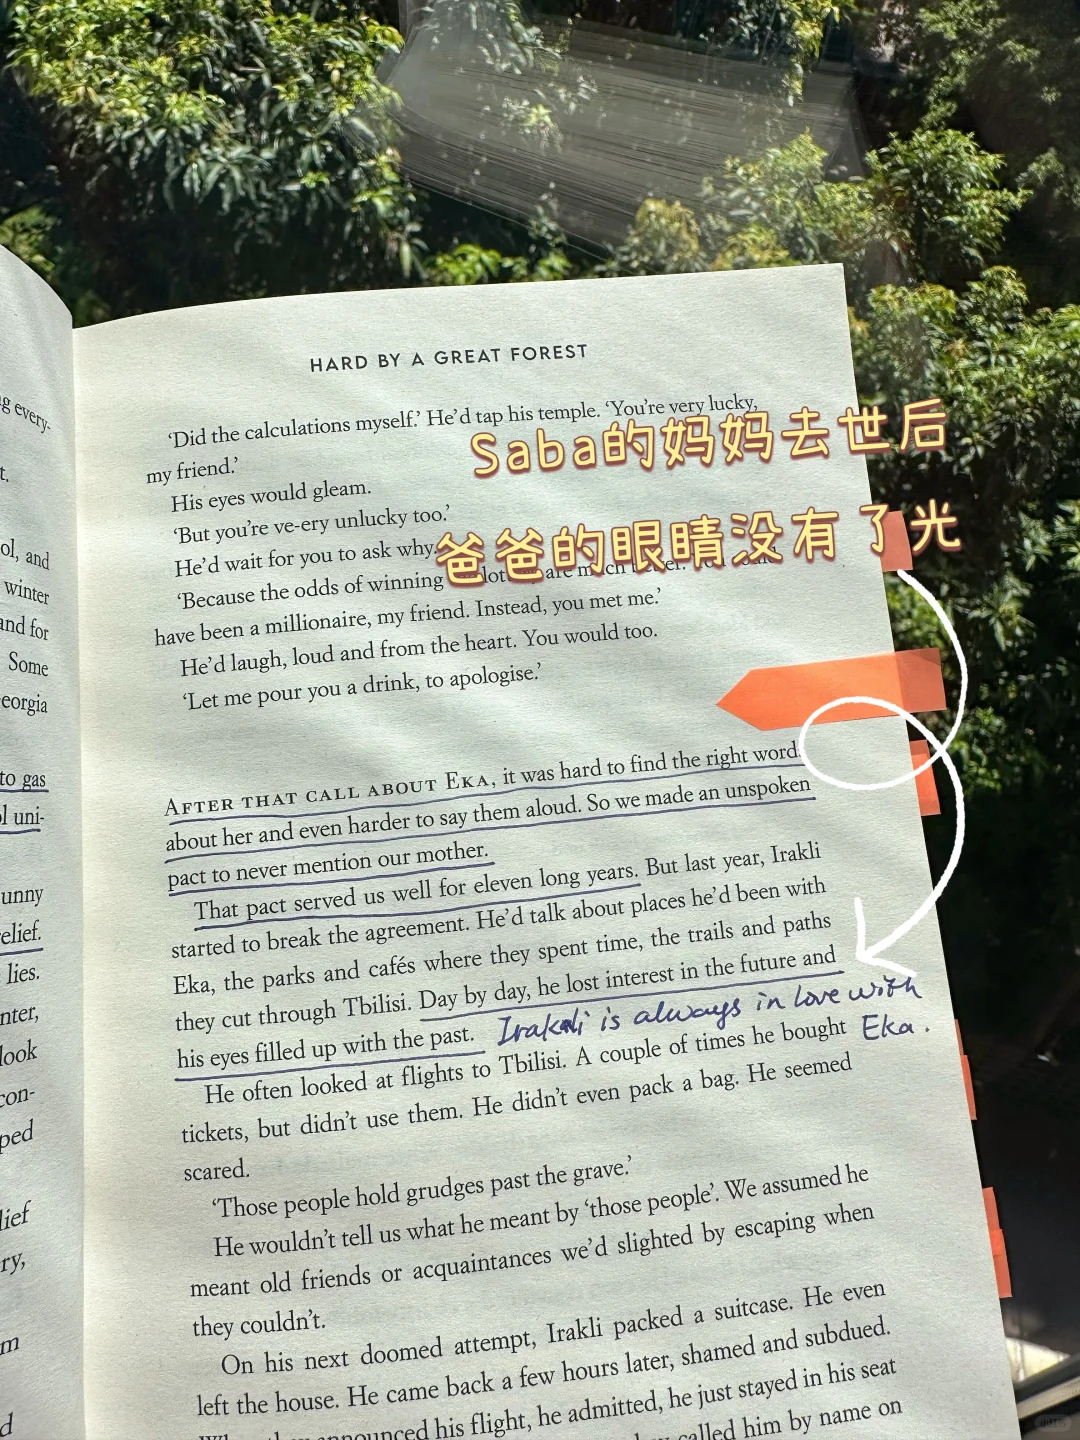 g every-
t.
ol, and
winter
and for
Some
eorgia
to gas
ol uni-
unny
elief.
lies.
nter,
look
con-
ped
lief
ry,
m
d
HARD BY A GREAT FOREST
‘Did the calculations myself.’ He’d tap his temple. ‘You’re very lucky,
my friend.’
Saba的妈妈去世后
His eyes would gleam.
‘But you’re ve-ery unlucky too.’
He’d wait for you to ask why.
爸爸的眼睛没有了光
‘Because the odds of winning are much
have been a millionaire, my friend. Instead, you met me.’
He’d laugh, loud and from the heart. You would too.
‘Let me pour you a drink, to apologise.’
AFTER THAT CALL ABOUT EKA, it was hard to find the right words
about her and even harder to say them aloud. So we made an unspoken
pact to never mention our mother.
That pact served us well for eleven long years. But last year, Irakli
started to break the agreement. He’d talk about places he’d been with
Eka, the parks and cafés where they spent time, the trails and paths
they cut through Tbilisi. Day by day, he lost interest in the future and
his eyes filled up with the past. Irakli is always in love with
Eka.
He often looked at flights to Tbilisi. A couple of times he bought
tickets, but didn’t use them. He didn’t even pack a bag. He seemed
scared.
‘Those people hold grudges past the grave.’
He wouldn’t tell us what he meant by ‘those people’. We assumed he
meant old friends or acquaintances we’d slighted by escaping when
they couldn’t.
On his next doomed attempt, Irakli packed a suitcase. He even
left the house. He came back a few hours later, shamed and subdued.
announced his flight, he admitted, he just stayed in his seat
called him by name on